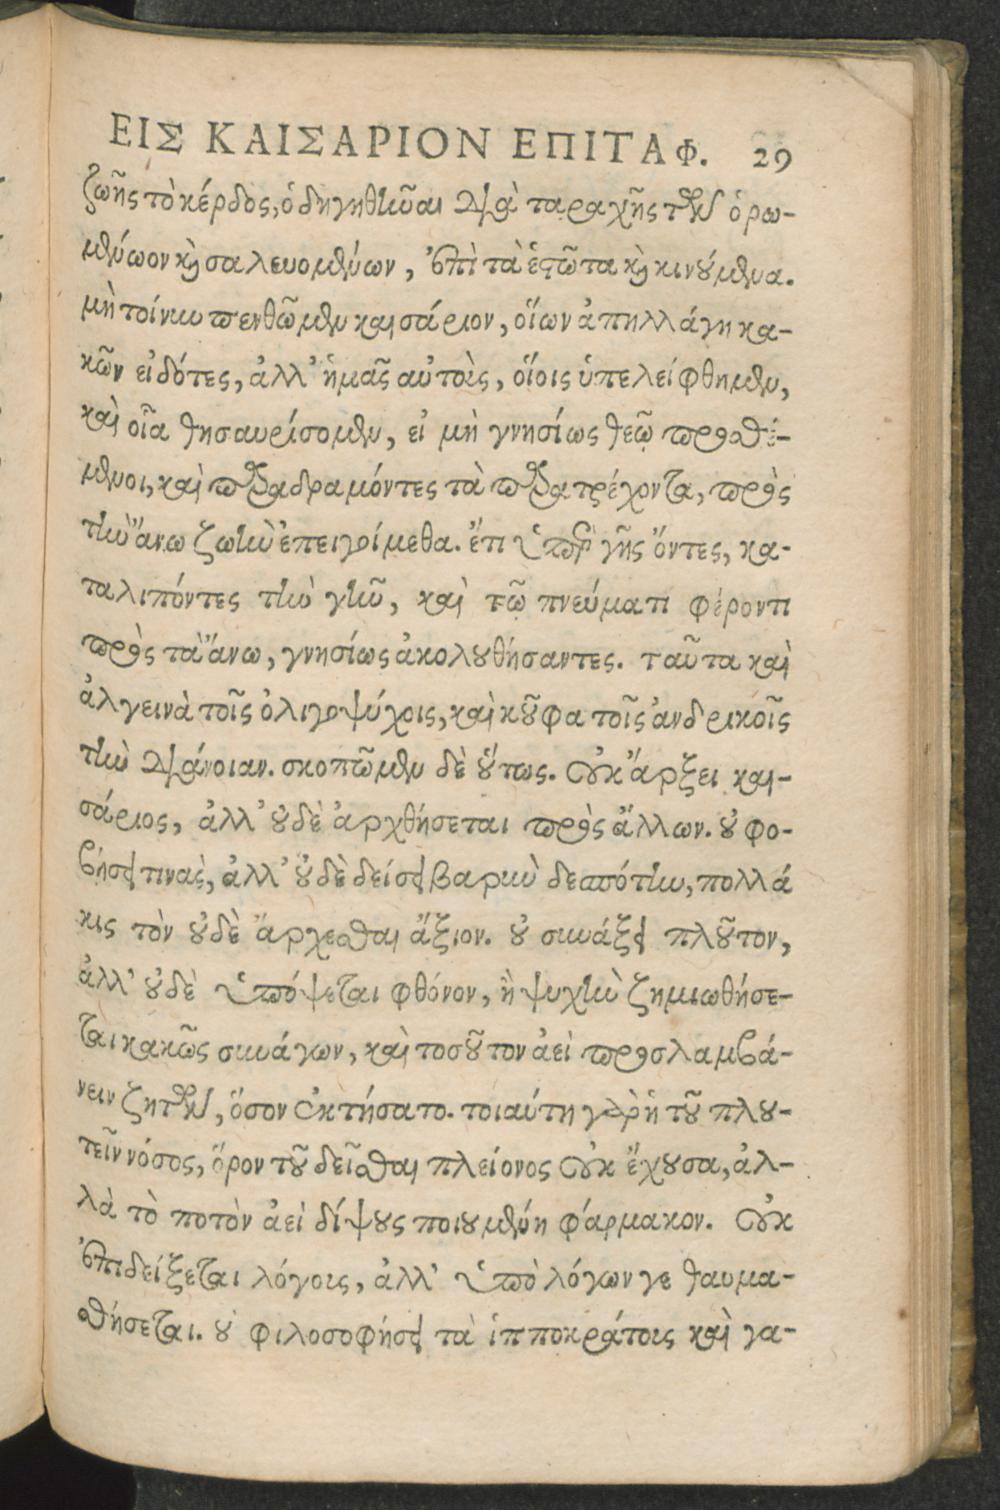 ΕΙΣ ΚΑΙΣΑΡΙΟΝ ΕΠΙΤΑΦ. 29
ζωῆς τὸ κέρδος, ὁδηγηθῆναι διὰ ταραχῆς τῶν ὁρω-
μένωον καὶ σαλευομένων, ἐπὶ τὰ ἑστῶτα καὶ κινούμενα.
μὴ τοίνυν πενθῶμεν καισάριον, οἵων ἀπηλλάγη κα-
κῶν εἰδότες, ἀλλ' ἡμᾶς αὐτοὺς, οἵοις ὑπελείφθημεν,
καὶ οἷα θησαυρίσομεν, εἰ μὴ γνησίως θεῷ προσθέ-
μενοι, καὶ παραδραμόντες τὰ παρατρέχοντα, πρὸς
τὴν ἄνω ζωὴν ἐπειγοίμεθα. ἔτι ὑπὲρ γῆς ὄντες, κα-
ταλιπόντες τὴν γῆν, καὶ τῷ πνεύματι φέροντι
πρὸς τὰ ἄνω, γνησίως ἀκολουθήσαντες. ταῦτα καὶ
ἀλγεινὰ τοῖς ὀλιγοψύχοις, καὶ κοῦφα τοῖς ἀνδρικοῖς
τὴν διάνοιαν. σκοπῶμεν δὲ οὕτως. οὐκ ἄρξει και-
σάριος, ἀλλ' οὐδὲ ἀρχθήσεται πρὸς ἄλλων. οὐ φο-
βήσει τινὰς, ἀλλ' οὐδὲ δείσει βαρὺν δεσπότην, πολλά
κις τὸν οὐδὲ ἄρχεσθαι ἄξιον. οὐ συνάξει πλοῦτον,
ἀλλ' οὐδὲ ὑπόψεται φθόνον, ἢ ψυχὴν ζημιωθήσε-
ται κακῶς συνάγων, καὶ τοσοῦτον ἀεὶ προσλαμβά-
νειν ζητῶν, ὅσον ἐκτήσατο. τοιαύτη γὰρ ἡ τοῦ πλου-
τεῖν νόσος, ὅρον τοῦ δεῖσθαι πλείονος οὐκ ἔχουσα, ἀλ-
λὰ τὸ ποτὸν ἀεὶ δίψους ποιουμένη φάρμακον. οὐκ
ἐπιδείξεται λόγοις, ἀλλ' ὑπὸ λόγων γε θαυμα-
σθήσεται. οὐ φιλοσοφήσει τὰ ἱπποκράτους καὶ γα-